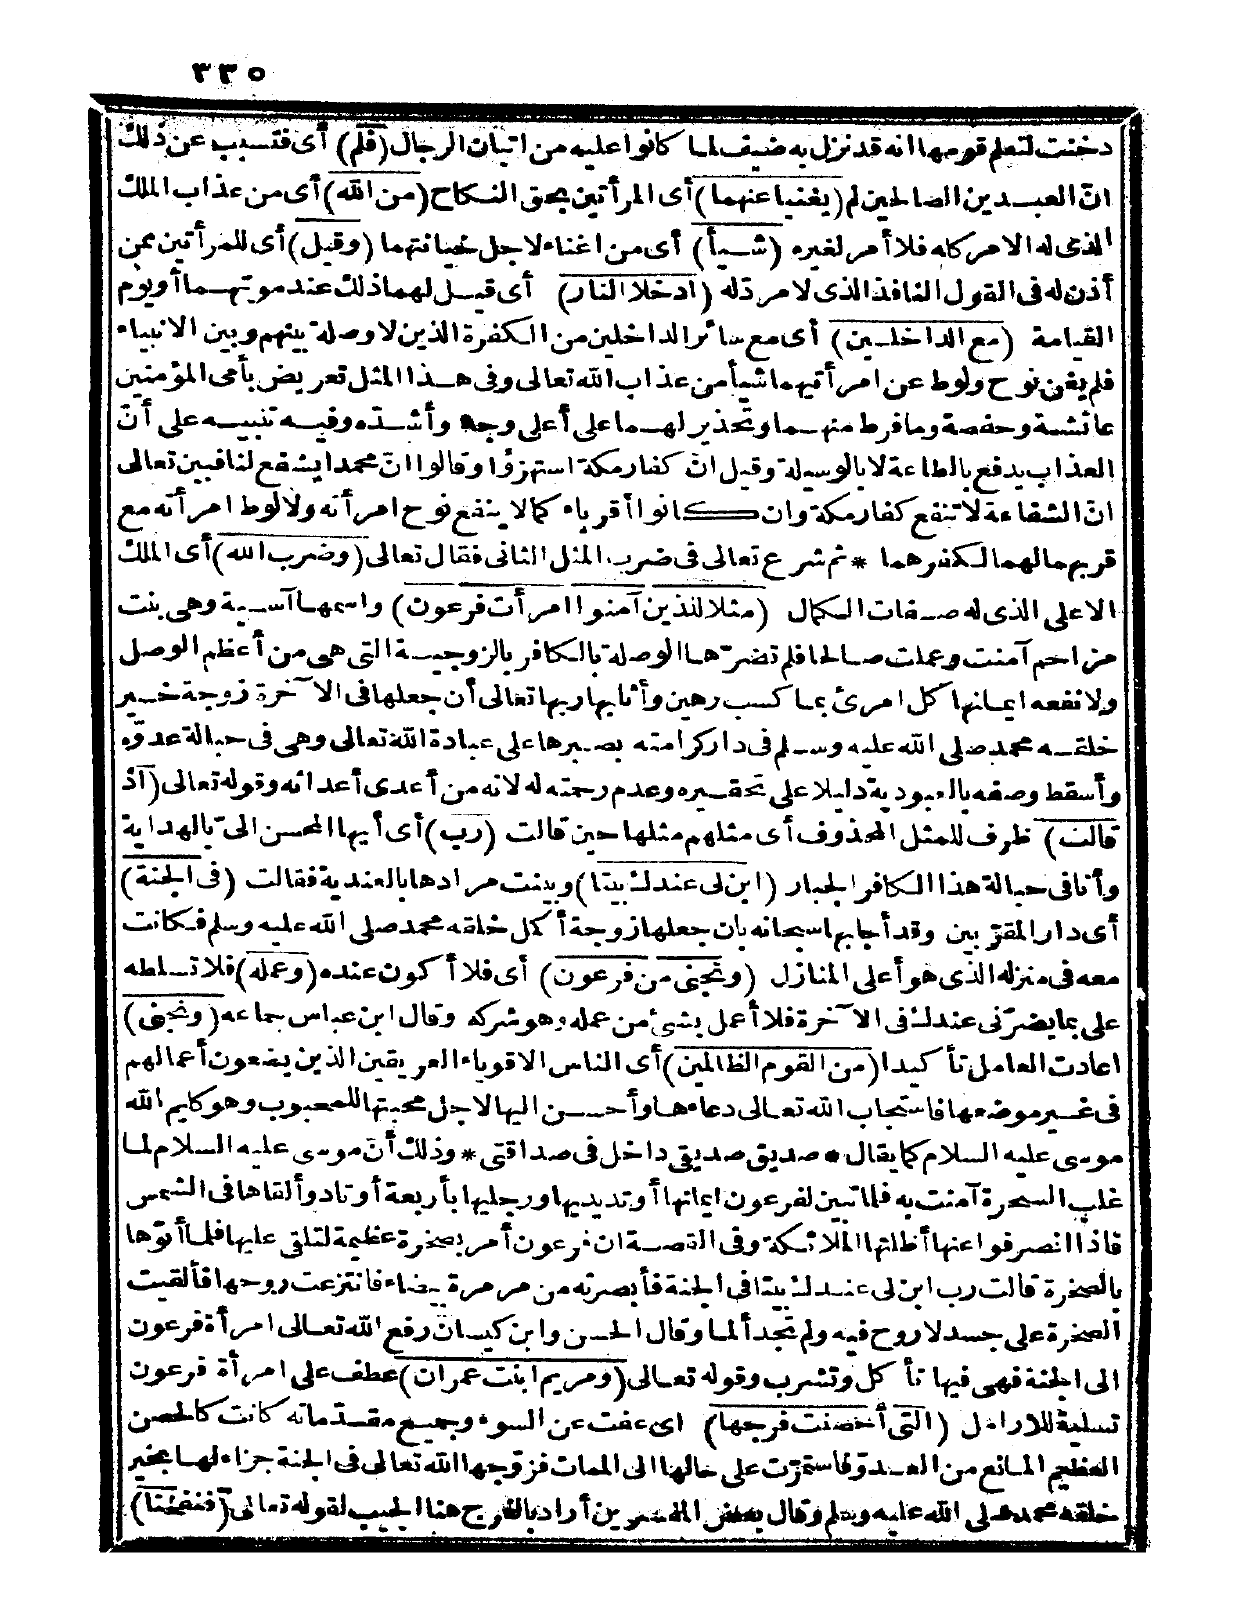 ٣٣٥
دخنت لتعلم قومها انه قد نزل به ضيف لما كانوا عليه من اتيان الرجال (فلم) أى فتسبب عن ذلك
انّ العبدين الصالحين لم (يغنيا عنهما) أى المرأتين بحق النكاح (من الله) أى من عذاب الملك
الذى له الامر كله فلا أمر لغيره (شيأ) أى من اغناء لاجل خيانتهما (وقيل) أى للمرأتين ممن
أذن له فى القول النافذ الذى لا مردّ له (ادخلا النار) أى قيل لهما ذلك عند موتهما أو يوم
القيامة (مع الداخلين) أى مع سائر الداخلين من الكفرة الذين لا وصلة بينهم وبين الانبياء
فلم يغن نوح ولوط عن امرأتيهما شيأ من عذاب الله تعالى وفى هذا المثل تعريض بأمى المؤمنين
عائشة وحفصة وما فرط منهما وتحذير لهما على أعلى وجه وأشدّه وفيه تنبيه على أنّ
العذاب يدفع بالطاعة لا بالوسيلة وقيل انّ كفار مكة استهزؤا وقالوا انّ محمدا يشفع لنا فبين تعالى
انّ الشفاعة لا تنفع كفار مكة وان كانوا أقرباء كما لا ينفع نوح امرأته ولا لوط امرأته مع
قربهما لهما لكفرهما * ثم شرع تعالى فى ضرب المثل الثانى فقال تعالى (وضرب الله) أى الملك
الاعلى الذى له صفات الكمال (مثلا للذين آمنوا امرأت فرعون) واسمها آسية وهى بنت
مزاحم آمنت وعملت صالحا فلم تضرّها الوصلة بالكافر بالزوجية التى هى من أعظم الوصل
ولا نفعه ايمانها كل امرئ بما كسب رهين وأثابها ربها تعالى أن جعلها فى الآخرة زوجة خير
خلقه محمد صلى الله عليه وسلم فى دار كرامته بصبرها على عبادة الله تعالى وهى فى حبالة عدوّه
وأسقط وصفه بالعبودية دليلا على تحقيره وعدم رحمته له لانه من أعدى أعدائه وقوله تعالى (اذ
قالت) ظرف للمثل المحذوف أى مثلهم مثلها حين قالت (رب) أى أيها المحسن الىّ بالهداية
وأنا فى حبالة هذا الكافر الجبار (ابن لى عندك بيتا) وبينت مرادها بالعندية فقالت (فى الجنة)
أى دار المقرّبين وقد أجابها سبحانه بان جعلها زوجة أكمل خلقه محمد صلى الله عليه وسلم فكانت
معه فى منزله الذى هو أعلى المنازل (ونجنى من فرعون) أى فلا أكون عنده (وعمله) فلا تسلطه
على بما يضرّنى عندك فى الآخرة فلا أعمل بشئ من عمله وهو شركه وقال ابن عباس جماعه (ونجنى)
اعادت العامل تأكيدا (من القوم الظالمين) أى الناس الاقوياء العريقين الذين يضعون أعمالهم
فى غير موضعها فاستجاب الله تعالى دعاءها وأحسن اليها لاجل محبتها للمحبوب وهو كليم الله
موسى عليه السلام كما يقال * صديق صديقى داخل فى صداقتى * وذلك أنّ موسى عليه السلام لما
غلب السحرة آمنت به فلما تبين لفرعون ايمانها أوتد يديها ورجليها بأربعة أوتاد وألقاها فى الشمس
فاذا انصرفوا عنها أظلتها الملائكة وفى القصة ان فرعون أمر بصخرة عظيمة لتلقى عليها فلما أتوها
بالصخرة قالت رب ابن لى عندك بيتا فى الجنة فأبصرته من مرمرة بيضاء فانتزعت روحها فألقيت
الصخرة على جسد لا روح فيه ولم تجد ألما وقال الحسن وابن كيسان رفع الله تعالى امرأة فرعون
الى الجنة فهى فيها تأكل وتشرب وقوله تعالى (ومريم ابنت عمران) عطف على امرأة فرعون
تسلية للارامل (التى أحصنت فرجها) اى عفت عن السوء وجميع مقدّماته كانت كالحصن
العظيم المانع من العدوّ فاستمرّت على حالها الى الممات فزوّجها الله تعالى فى الجنة جزاء لها بخير
خلقه محمد صلى الله عليه وسلم وقال بعض المفسرين أراد بالفرج هنا الجيب لقوله تعالى (فنفخنا)